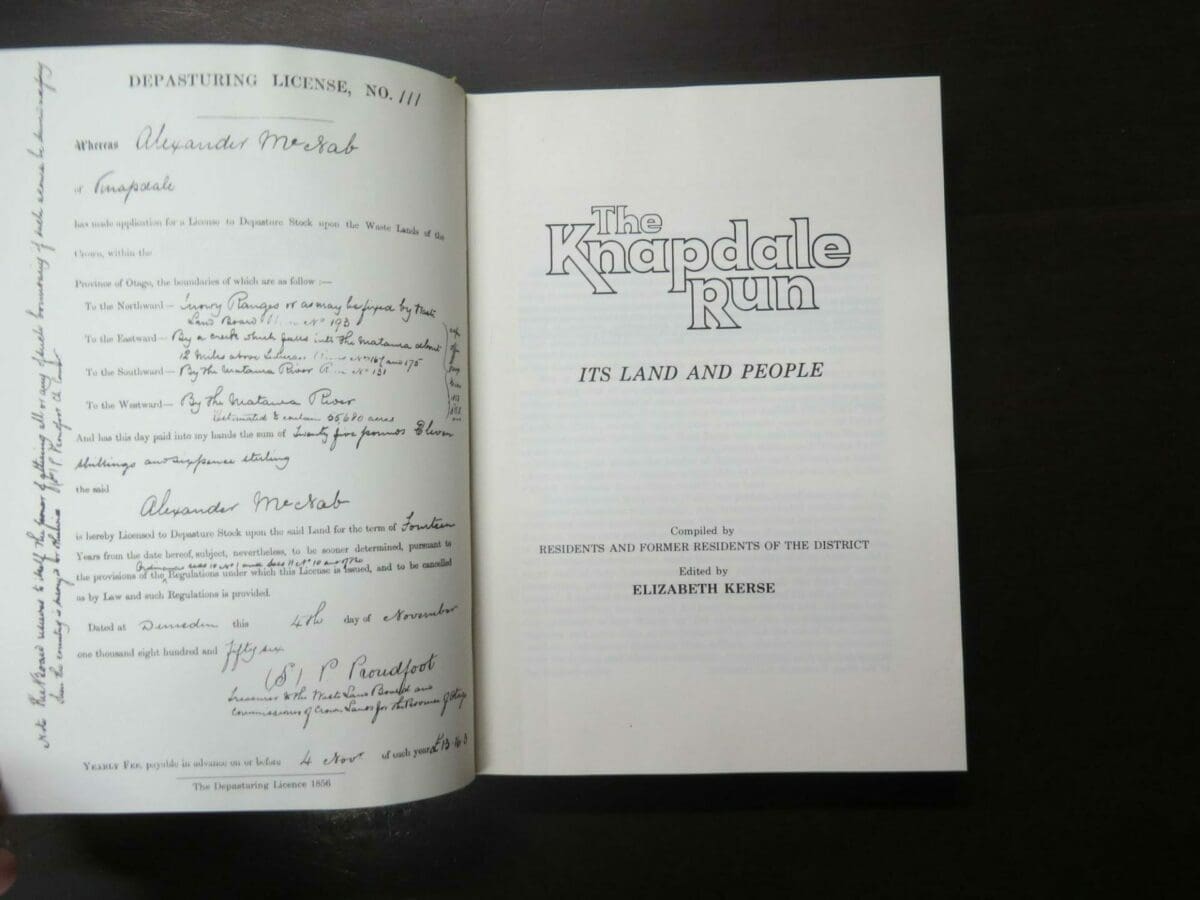 DEPASTURING LICENSE, NO. 111
Whereas Alexander McNab
of Knapdale
has made application for a License to Depasture Stock upon the Waste Lands of the
Crown, within the
Province of Otago, the boundaries of which are as follow :—
To the Northward — Ranges or as may be fixed by Waste
Land Board No 193
To the Eastward — By a creek which falls into the Mataura about
12 miles above Nos 167 and 175
To the Southward — By the Mataura River Run No 131
To the Westward — By the Mataura River
Estimated to contain 55,680 acres
And has this day paid into my hands the sum of Twenty five pounds Eleven
shillings and sixpence sterling
the said
Alexander McNab
is hereby Licensed to Depasture Stock upon the said Land for the term of Fourteen
Years from the date hereof, subject, nevertheless, to be sooner determined, pursuant to
the provisions of the Regulations under which this License is issued, and to be cancelled
as by Law and such Regulations is provided.
Dated at Dunedin this 4th day of November
one thousand eight hundred and fifty six
(S) P Proudfoot
Treasurer to the Waste Land Board and
Commissioner of Crown Lands for the Province of Otago
YEARLY FEE, payable in advance on or before 4 Novr of each year
The Depasturing Licence 1856
The
Knapdale
Run
ITS LAND AND PEOPLE
Compiled by
RESIDENTS AND FORMER RESIDENTS OF THE DISTRICT
Edited by
ELIZABETH KERSE